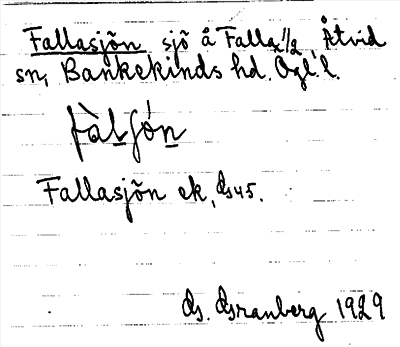 Fallasjön sjö å Falla 1/2, Åtvid
sn, Bankekinds hd. Ögl. l.
fàlʃón
Fallasjön ek, ds 45.
Ds. Granberg 1929